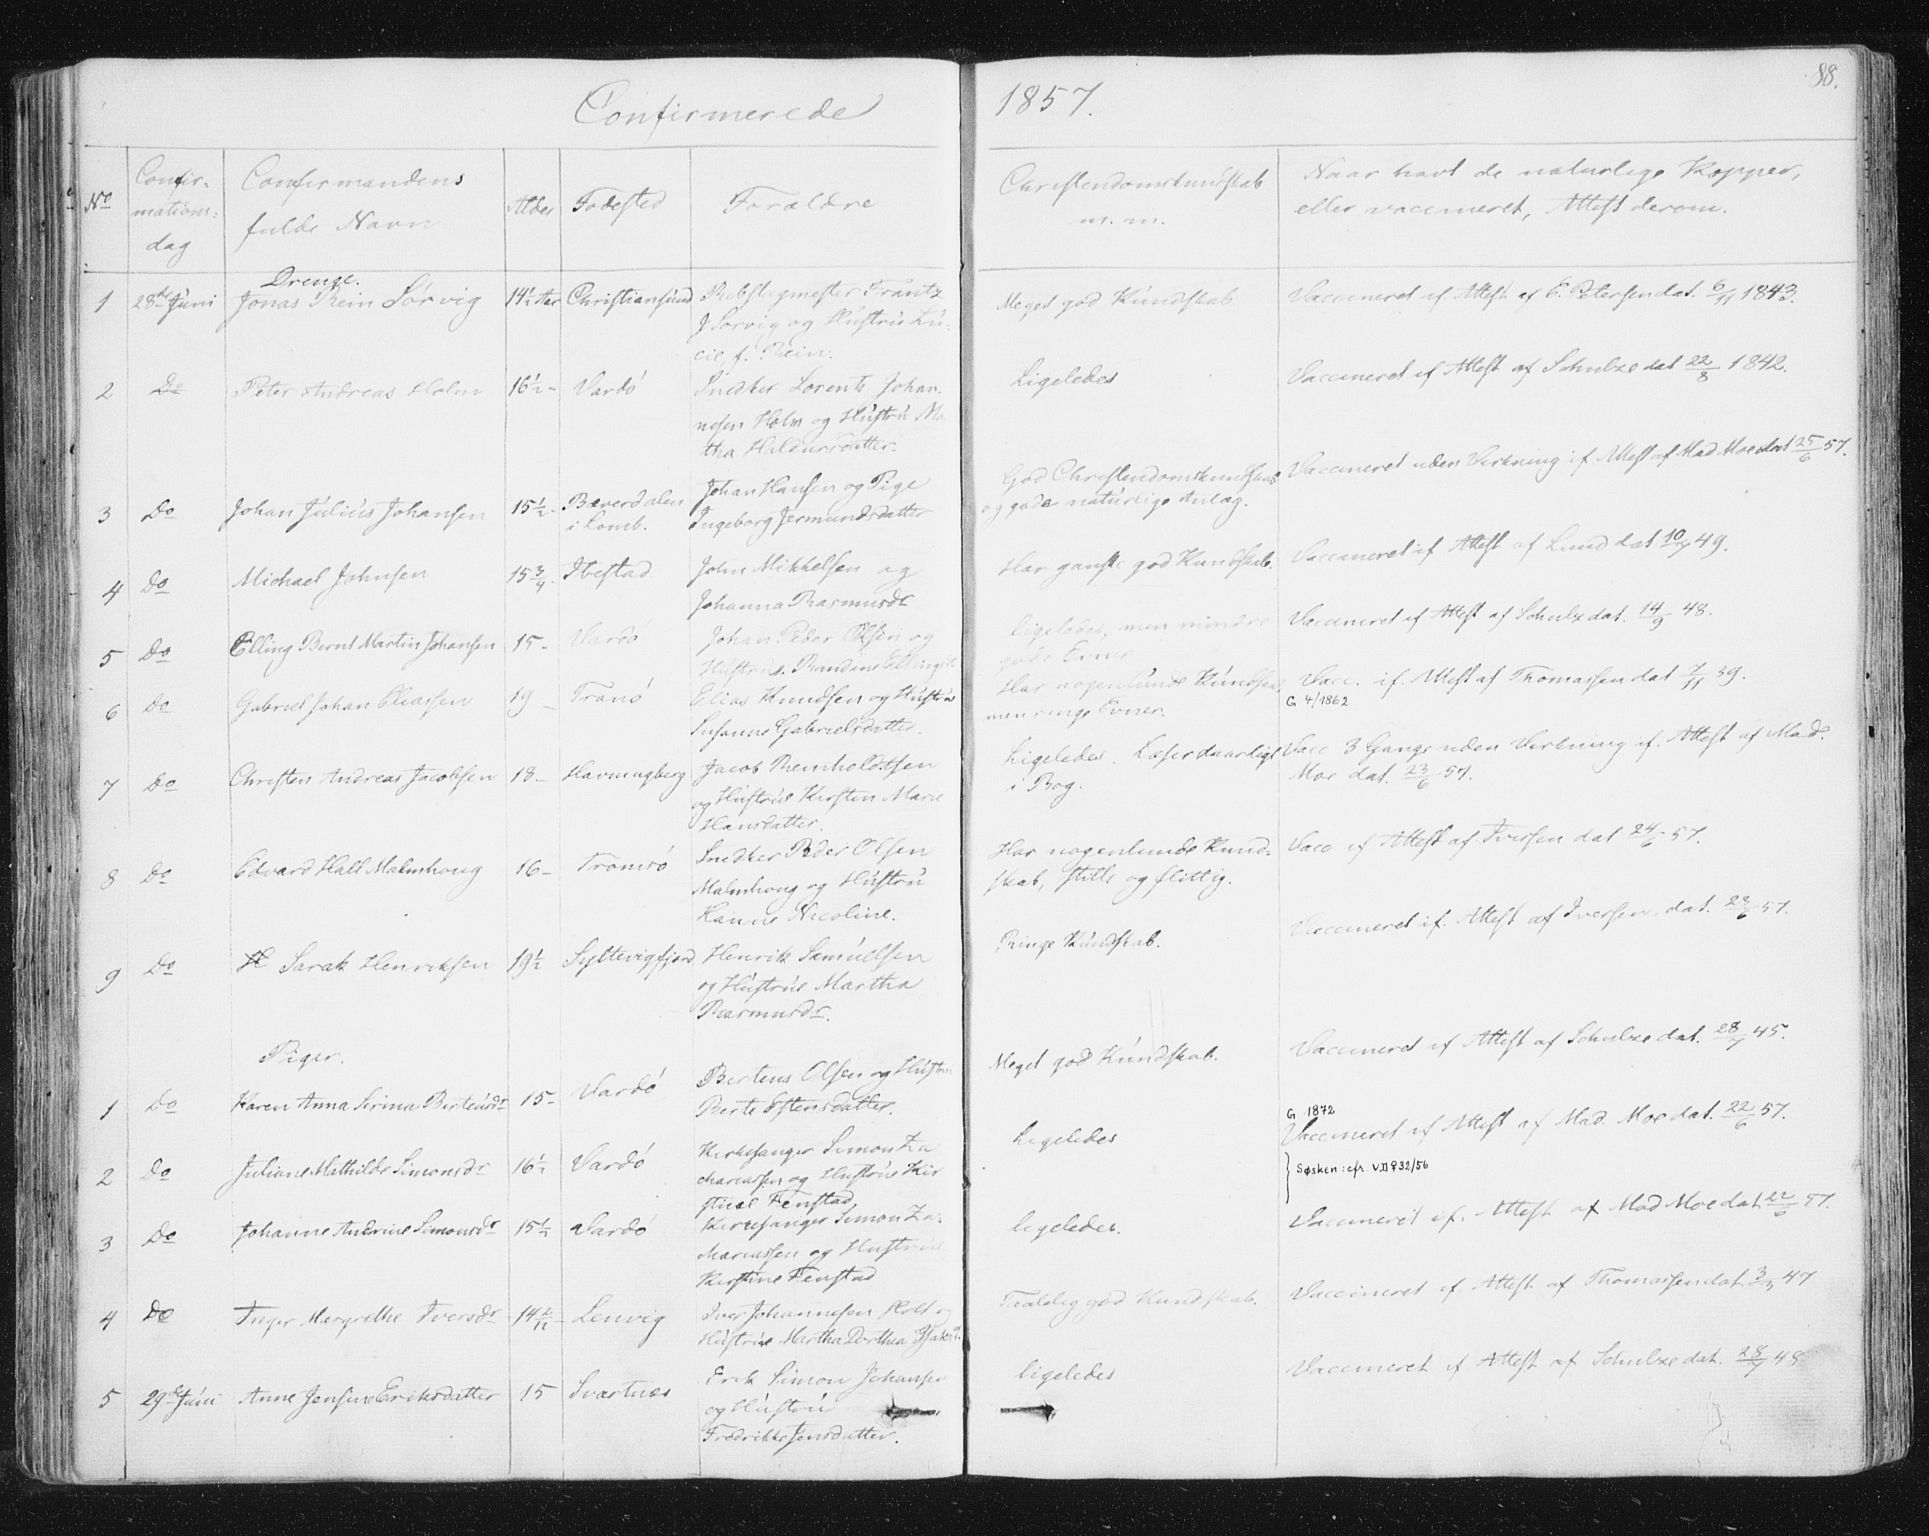 Confirmerede 1857.
88.
No
Confirmations: dag
Confirmandens fulde Navn
Alder
Fødested
Forældre
Christendomskundskab m. m.
Naar havt de naturlige Kopper, eller vaccineret, Attest derom.
Drenge.
1 28de Juni Jonas Rein Sørvig 14½ Aar Christiansund Rebslagmester Frantz Meget god Kundskab Vaccineret if Attest af C. Petersen dat. 6/11 1843.
J Sørvig og Hustru Lu-
cie, f. Rein.
2 Do Peter Andreas Holm 16½ - Vardö Snedker Lorents Johan- Ligeledes Vaccineret if Attest af Schulze dat 22/8 1842.
nesen Holm og Hustru Ma
tha Heldursdatter.
3 Do Johan Julius Johansen 15½ - Bæverdalen Johan Hansen og Pige God Christendomskundskab Vaccineret uden Virkning if. Attest af Mad Moe dat 25/6 57.
i Lomb. Ingeborg Jermundsdatter og gode naturlige Anlæg.
4 Do Michael Johnsen 15¾ - Ibestad John Mikkelsen og Har ganske god Kundskab. Vaccineret if Attest af Lund dat 10/7 49.
Johanna Rasmusdr
5 Do Elling Bernt Martin Johansen 15 - Vardö Johan Peder Olsen og ligeledes, men mindre Vaccineret if Attest af Schulz dat. 14/9 48.
Hustrue Randine Ellingsdr gode Evner
6 Do Gabriel Johan Eliassen 19 - Tranö Elias Knudsen og Hustrue Har nogenlunde Kundskab, Vacc. if. Attest af Thomassen dat 7/11 39.
Susanne Gabrielsdatter. men ringe Evner. G 4/1862
7 Do Christen Andreas Jacobsen 18 - Havningberg Jacob Reinholdtsen Ligeledes. Læser daarligt Vacc 3 Gange uden Virkning if. Attest af Mad.
og Hustrue Kirsten Marie i Bog. Moe dat. 23/6 57.
Hansdatter.
8 Do Edvard Hall Malmhoug 16 - Tromsö Snedker Peder Olsen Har nogenlunde Kund- Vacc if Attest af Iversen dat 24/6 57.
Malmhoug og Hustru skab, stille og flittig.
Hanne Nicoline.
9 Do Sarak Henriksen 19½ Syltevigfjord Henrik Samuelsen Ringe Kundskab. Vaccineret if. Attest af Iversen. dat. 23/6 57.
og Hustrue Martha
Rasmusdr.
Piger.
1 Do Karen Anna Serina Berteusdr 15 - Vardö Berteus Olsen og Hustru Meget god Kundskab. Vaccineret if Attest af Schulze dat. 28/7 45.
Berte Estensdatter.
G 1872
2 Do Juliane Mathilde Simonsdr 16½ Vardö Kirkesanger Simon Za Ligeledes Vaccineret if Attest af Mad. Moe dat. 22/6 57.
chariassen og Hustrue Kir
stine Fenstad
Søsken: cfr. V.D ♀ 32/56
3 Do Johanne Andrine Simonsdr 15½ Vardö Kirkesanger Simon Za- ligeledes. Vaccineret if. Attest af Mad Moe dat 22/6 57.
chariassen og Hustrue
Kirstine Fenstad
4 Do Inger Margrethe Iversdr 14 2/11 - Lenvig Iver Johannesen Holt og Taalelig god Kundskab. Vaccineret if. Attest af Thomassen dat 3/7 47
Hustrue Martha Dorthea
5 29de Juni Anne Jensine Eriksdatter 15 Svartnæs Erik Simon Johansen ligeledes Vaccineret if Attest af Schulze dat. 28/7 48
og Hustru
Fredrikke Jensdatter.